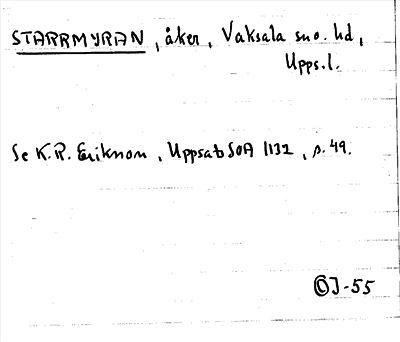 STARRMYRAN, åker, Vaksala sno. hd,
Upps.l.
Se K.R. Erikson, Uppsats SOA 1132, s. 49.
OJ-55